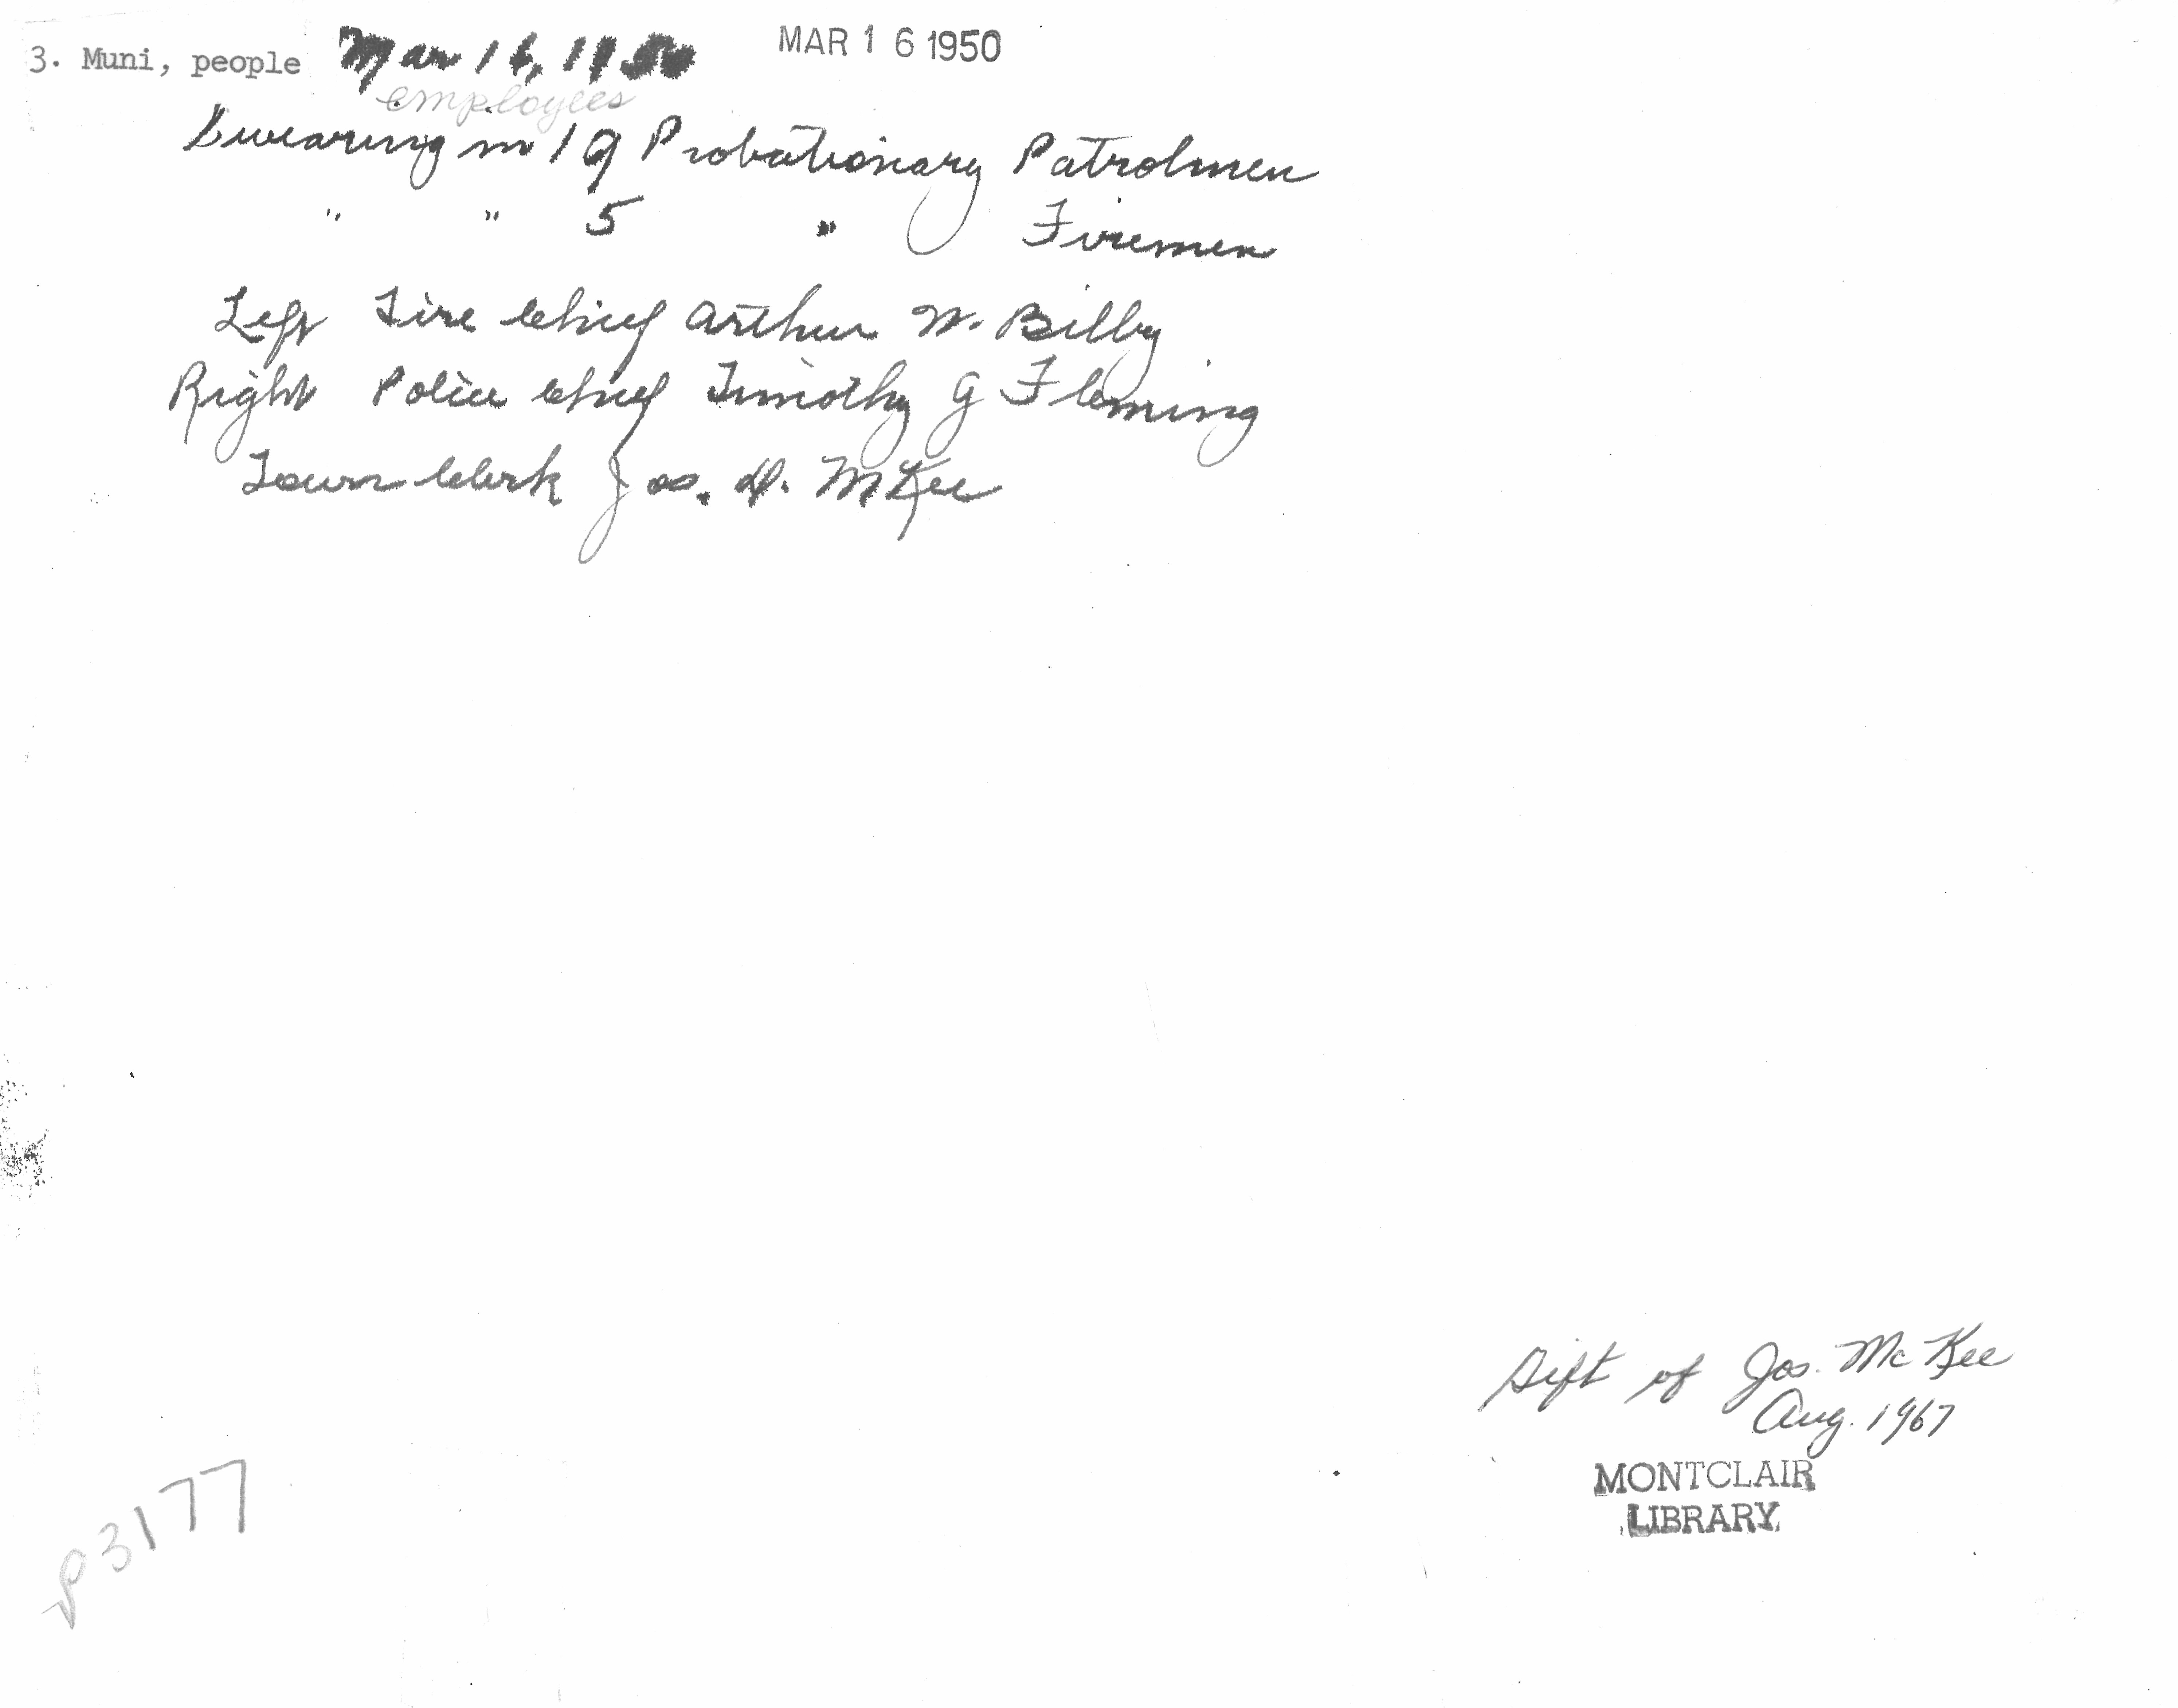 3. Muni, people Mar 16, 1950 MAR 16 1950
employees
Swearing in 19 Probationary Patrolmen
" " 5 " Firemen
Left Fire Chief Arthur W. Bilby
Right Police Chief Timothy G Fleming
Town Clerk Jos. D. McKee
Gift of Jos. McKee
Aug. 1967
MONTCLAIR
LIBRARY
p3177